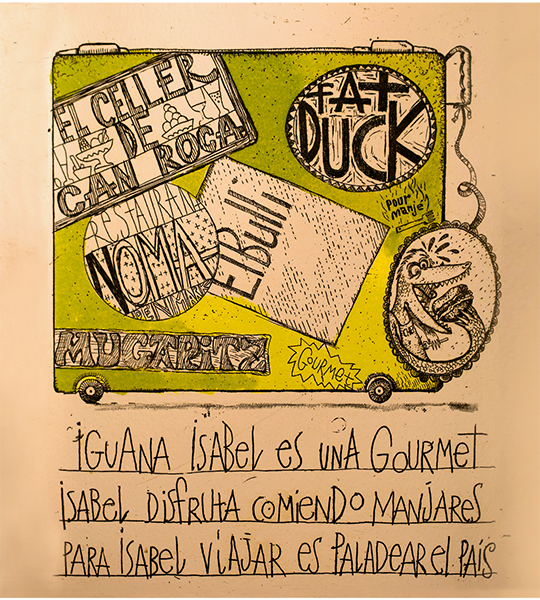 EL CELLER
DE
CAN ROCA
FAT
DUCK
pour
manje
ElBulli
NOMA
MUGARITZ
Gourmet
iGUANA iSABEL ES UNA GOURMET
iSABEL DiSFRUTA COMiENDO MANJARES
PARA iSABEL ViAJAR ES PALADEAR el PAÍS